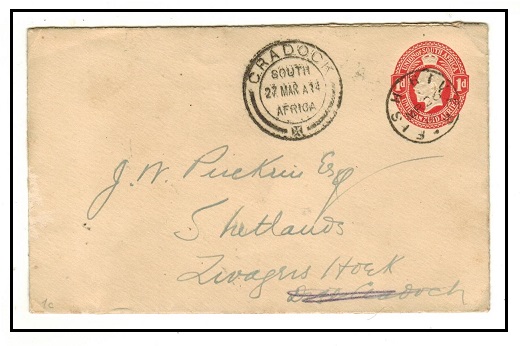 CRADOCK
SOUTH
27 MAR A14
AFRICA
UNION OF SOUTH AFRICA
1d 1d
UNIE VAN ZUID AFRIKA
FISH
J. W. Esq
Shetlands
Zwagers Hoek
Cradock
1c